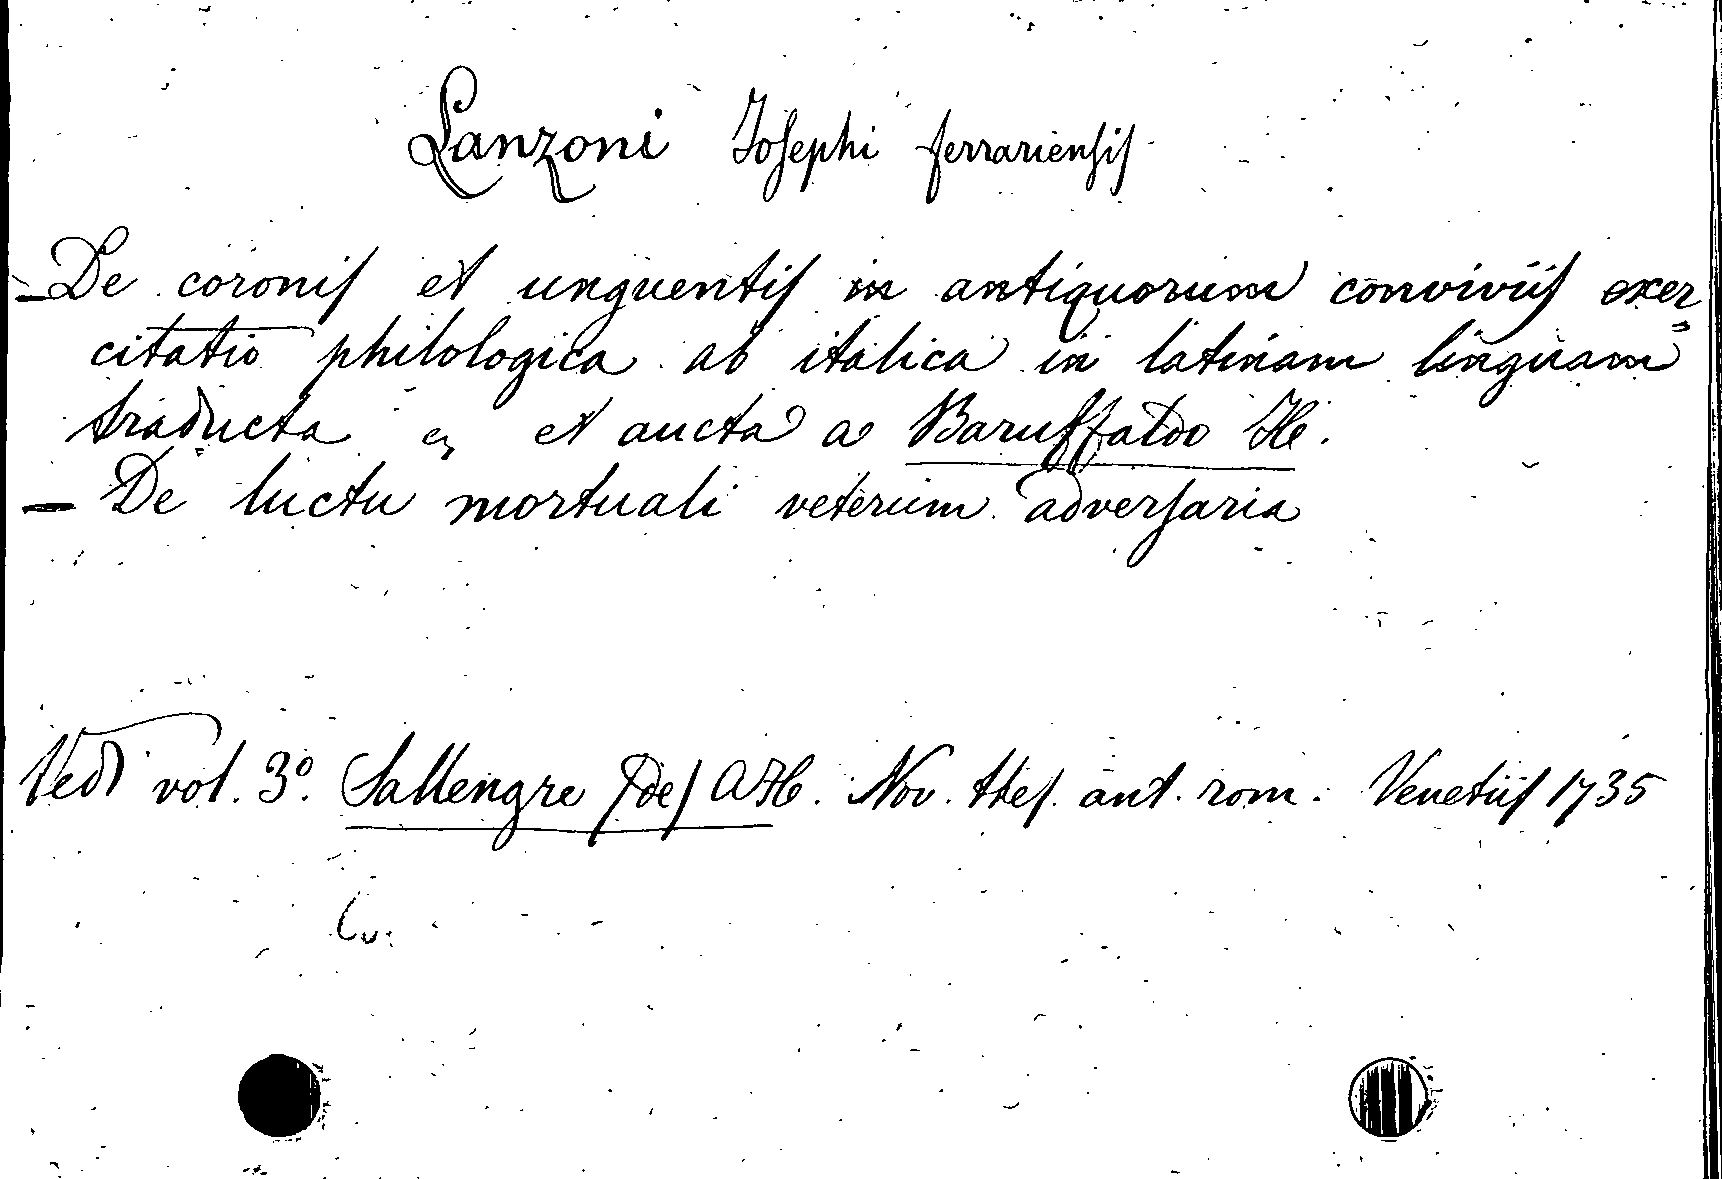 Lanzoni Josephi ferrariensis
- De coronis et unguentis in antiquorum conviviis exer
citatio philologica ab italica in latinam linguam
traducta et aucta a Baruffaldo He.
- De luctu mortuali veterum adversaria
Vedi vol. 3º. Sallengre (de) A. H. Nov. thes. ant. rom. Venetiis 1735